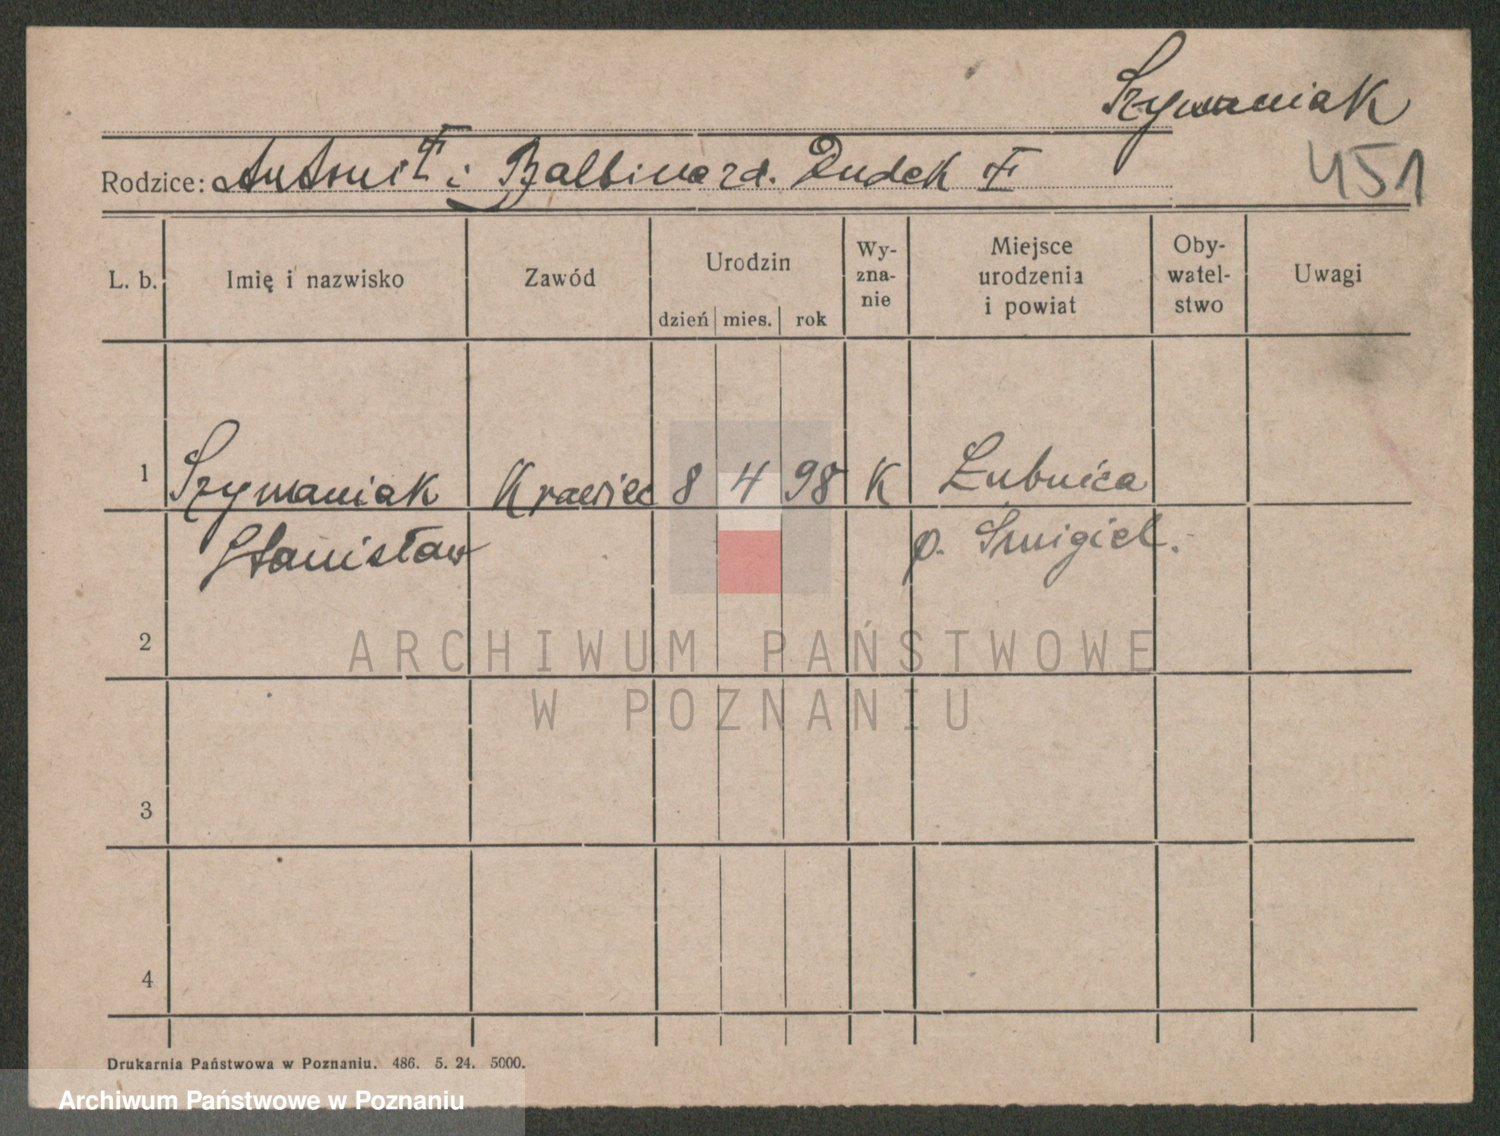 Szymaniak
451
Rodzice: Antoni i Balbina zd. Dudek
L. b.
Imię i nazwisko
Zawód
Urodzin
dzień mies. rok
Wy-
zna-
nie
Miejsce
urodzenia
i powiat
Oby-
watel-
stwo
Uwagi
1 Szymaniak Krawiec 8 4 98 K Łubnica
Stanisław p. Śmigiel.
2
ARCHIWUM PAŃSTWOWE
W POZNANIU
3
4
Drukarnia Państwowa w Poznaniu. 486. 5. 24. 5000.
Archiwum Państwowe w Poznaniu